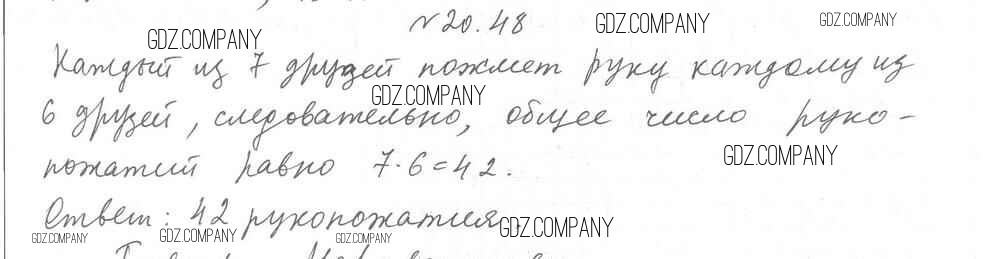 №20.48
GDZ.COMPANY GDZ.COMPANY GDZ.COMPANY
Каждый из 7 друзей пожмет руку каждому из
GDZ.COMPANY
6 друзей, следовательно, общее число руко-
GDZ.COMPANY
пожатий равно 7·6=42.
Ответ: 42 рукопожатия.
GDZ.COMPANY
GDZ.COMPANY GDZ.COMPANY GDZ.COMPANY